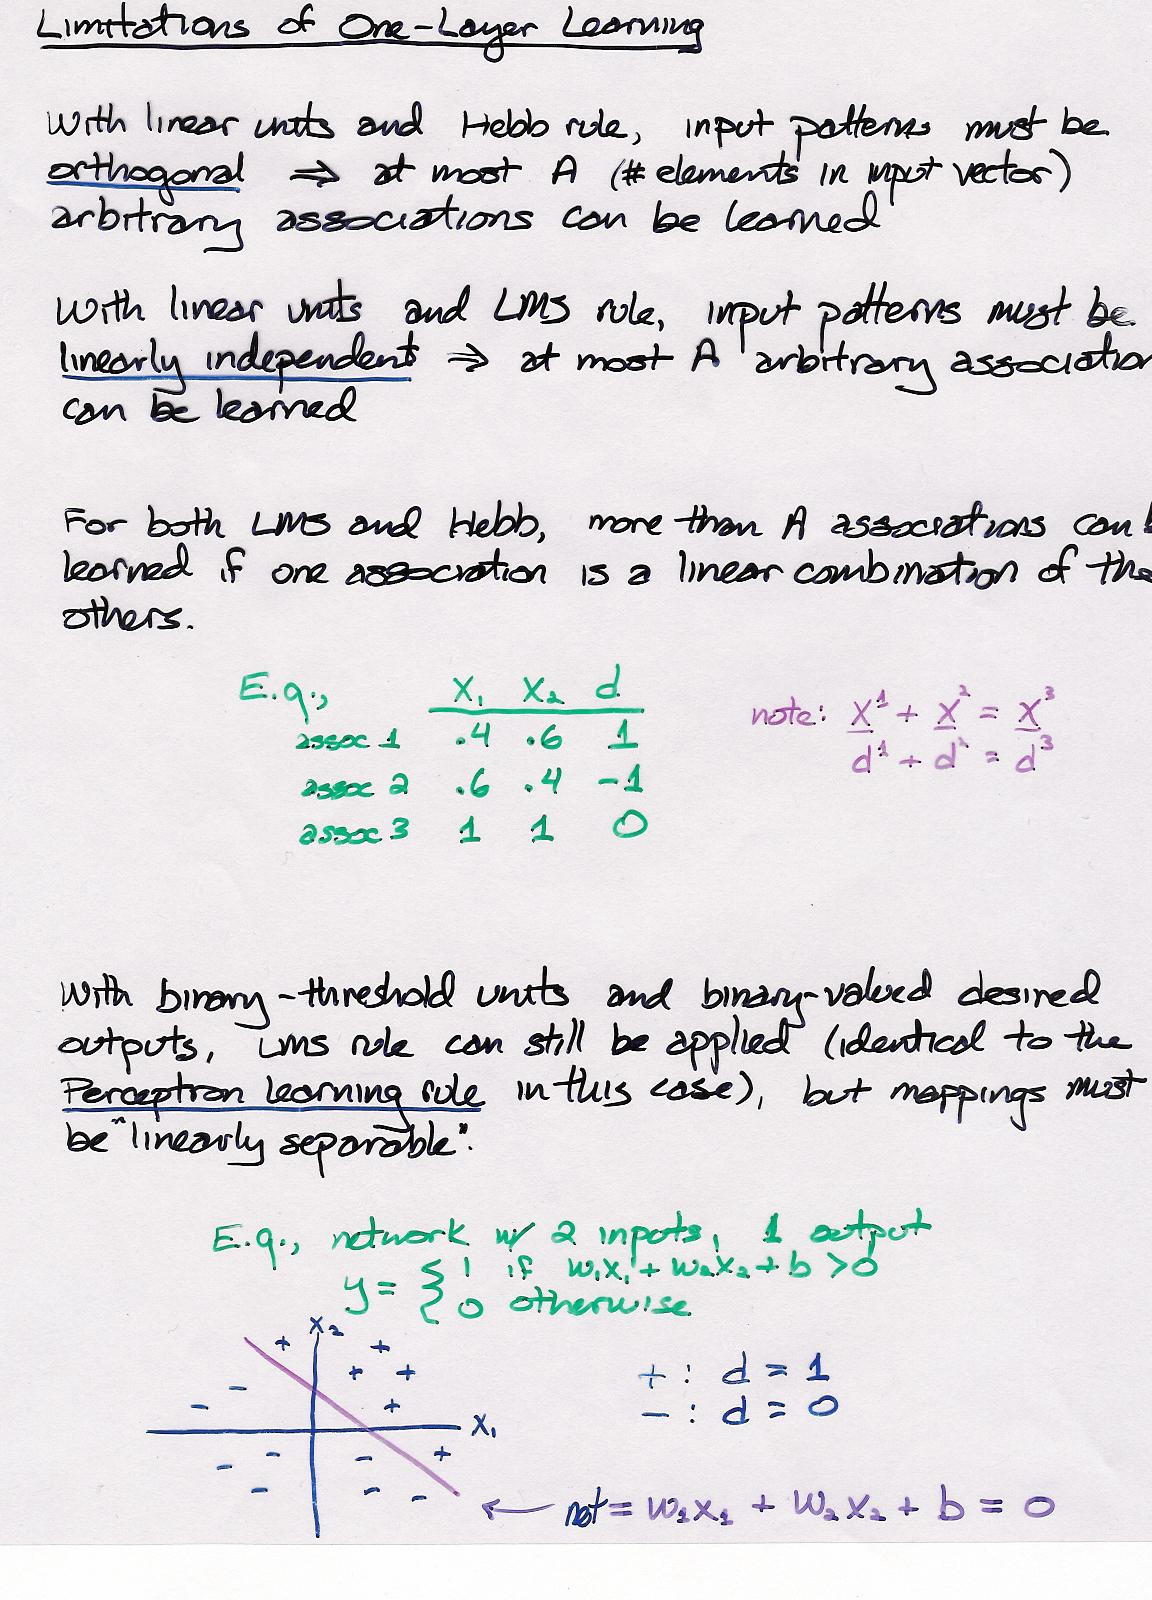 Limitations of One-Layer Learning
With linear units and Hebb rule, input patterns must be
orthogonal ⇒ at most A (# elements in input vector)
arbitrary associations can be learned
With linear units and LMS rule, input patterns must be
linearly independent ⇒ at most A arbitrary association
can be learned
For both LMS and Hebb, more than A associations can b
learned if one association is a linear combination of the
others.
E.g., x₁ x₂ d
assoc 1 .4 .6 1
assoc 2 .6 .4 -1
assoc 3 1 1 0
note: x¹ + x² = x³
d¹ + d² = d³
With binary-threshold units and binary-valued desired
outputs, LMS rule can still be applied (identical to the
Perceptron learning rule in this case), but mappings must
be "linearly separable".
E.g., network w/ 2 inputs, 1 output
y = { 1 if w₁x₁ + w₂x₂ + b > 0
0 otherwise
x₂
x₁
+ : d = 1
- : d = 0
← net = w₁x₁ + w₂x₂ + b = 0